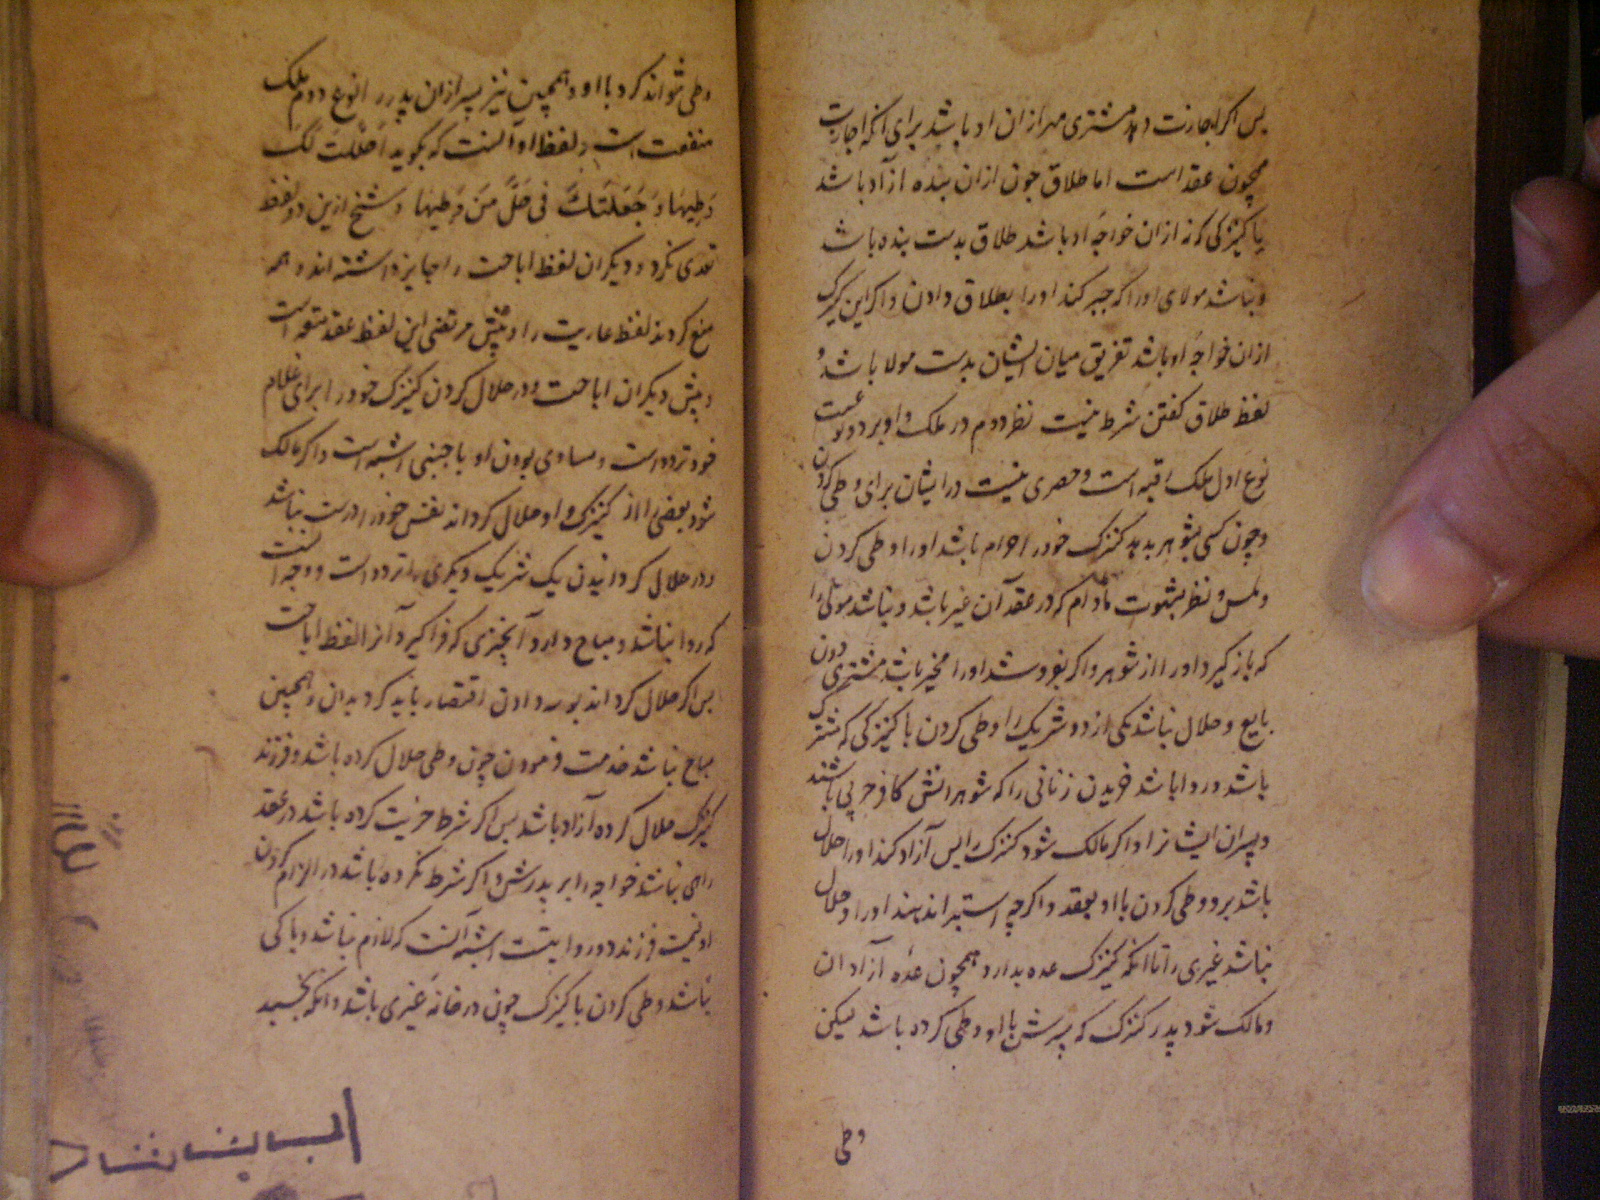 پس اکر اجازت دهد مشتری مهر ازان او باشد برای آنکه اجازت
همچون عقد است اما طلاق چون ازان بنده آزاد باشد
یا کنیزکی که نه ازان خواجه او باشد طلاق بدست بنده باشد
و نباشد مولای او را که جبر کند او را بطلاق دادن و اکر این کنیزک
ازان خواجه او باشد تفریق میان ایشان بدست مولا باشد و
لفظ طلاق کفتن شرط نیست نظر دوم در ملک و او بر دو نوعست
نوع اول ملک رقبه است و حصری نیست در ایشان برای وطی کردن
و چون کسی بشوهر بدهد کنیزک خود را حرام باشد او را وطی کردن
و لمس و نظر بشهوت مادام که در عقد آن غیر باشد و نباشد مولی را
که باز کیرد او را از شوهر و اکر بفروشد او را مخیر باشد مشتری دون
بایع و حلال نباشد یکی از دو شریک را وطی کردن با کنیزکی که مشترک
باشد و روا باشد خریدن زنانی را که شوهرانش کافر حربی باشند
و پسران ایشانرا و اکر مالک شود کنیزک پس آزاد کند او را حلال
باشد برو وطی کردن با او بعقد و اکرچه استبرا نه بیند او را و حلال
نباشد غیری را تا آنکه کنیزک عده بدارد همچون عده آزادان
و مالک شود پدر کنیزک که پسرش با او وطی کرده باشد لیکن
وطی
وطی نتواند کرد با او و همچنین نیز پسر ازان پدر نوع دوم ملک
منفعت است و لفظ او آنست که بکوید احللت لک
وطیها و جعلتک فی حل من وطیها و شیخ ازین دو لفظ
تعدی نکرد و دیکران لفظ اباحت را جایز داشته اند و همه
منع کردند لفظ عاریت را و پیش مرتضی این لفظ عقد متعه است
و پیش دیکران اباحت و در حلال کردن کنیزک خود را برای غلام
خود تردد است و مساوی بودن او با جنبی اشبه است و اکر مالک
شود بعضی را از کنیزک و او حلال کرداند نفس خود را درست نباشد
و در حلال کردانیدن یک شریک دیکری را تردد است و وجه آنست
که روا نباشد و مباح دارد آن چیزی که فرا کیرد آنرا لفظ اباحت
پس اکر حلال کرداند بوسه دادن اقتصار باید کرد بدان و همچنین
مباح نباشد خدمت فرمودن چون وطی حلال کرده باشد و فرزند
کنیزک حلال کرده آزاد باشد پس اکر شرط حریت کرده باشد در عقد
راهی نباشد خواجه را بر پدرش و اکر شرط نکرده باشد در الزام کردن
او قیمت فرزند دو روایتست اشبه آنست که لازم نباشد و باکی
نباشد وطی کردن با کنیزک چون در خانه غیری باشد و آنکه بخسبد